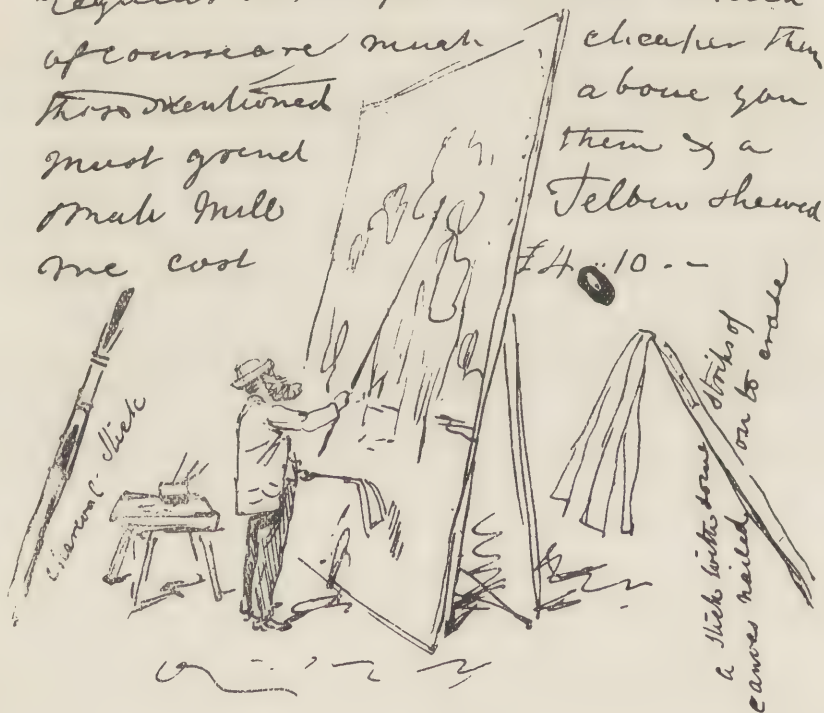 of course are much cheaper than
those mentioned above you
must grind them & a
small mill Telbin shewed
me cost £4..10.-
Charcoal Stick
a stick with some strips of
canvas nailed on to erase